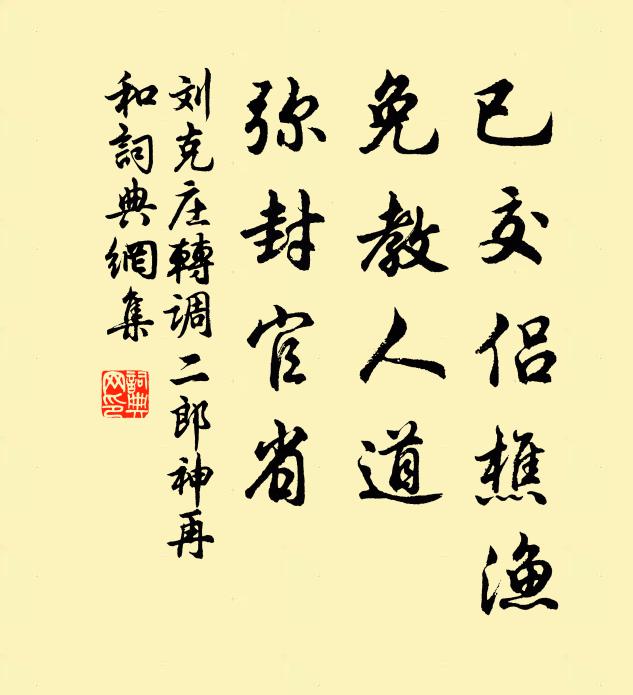 已交侣樵渔
免教人道
弥封官省
刘克庄轉调二郎神再
和詞典網集
詞典網印